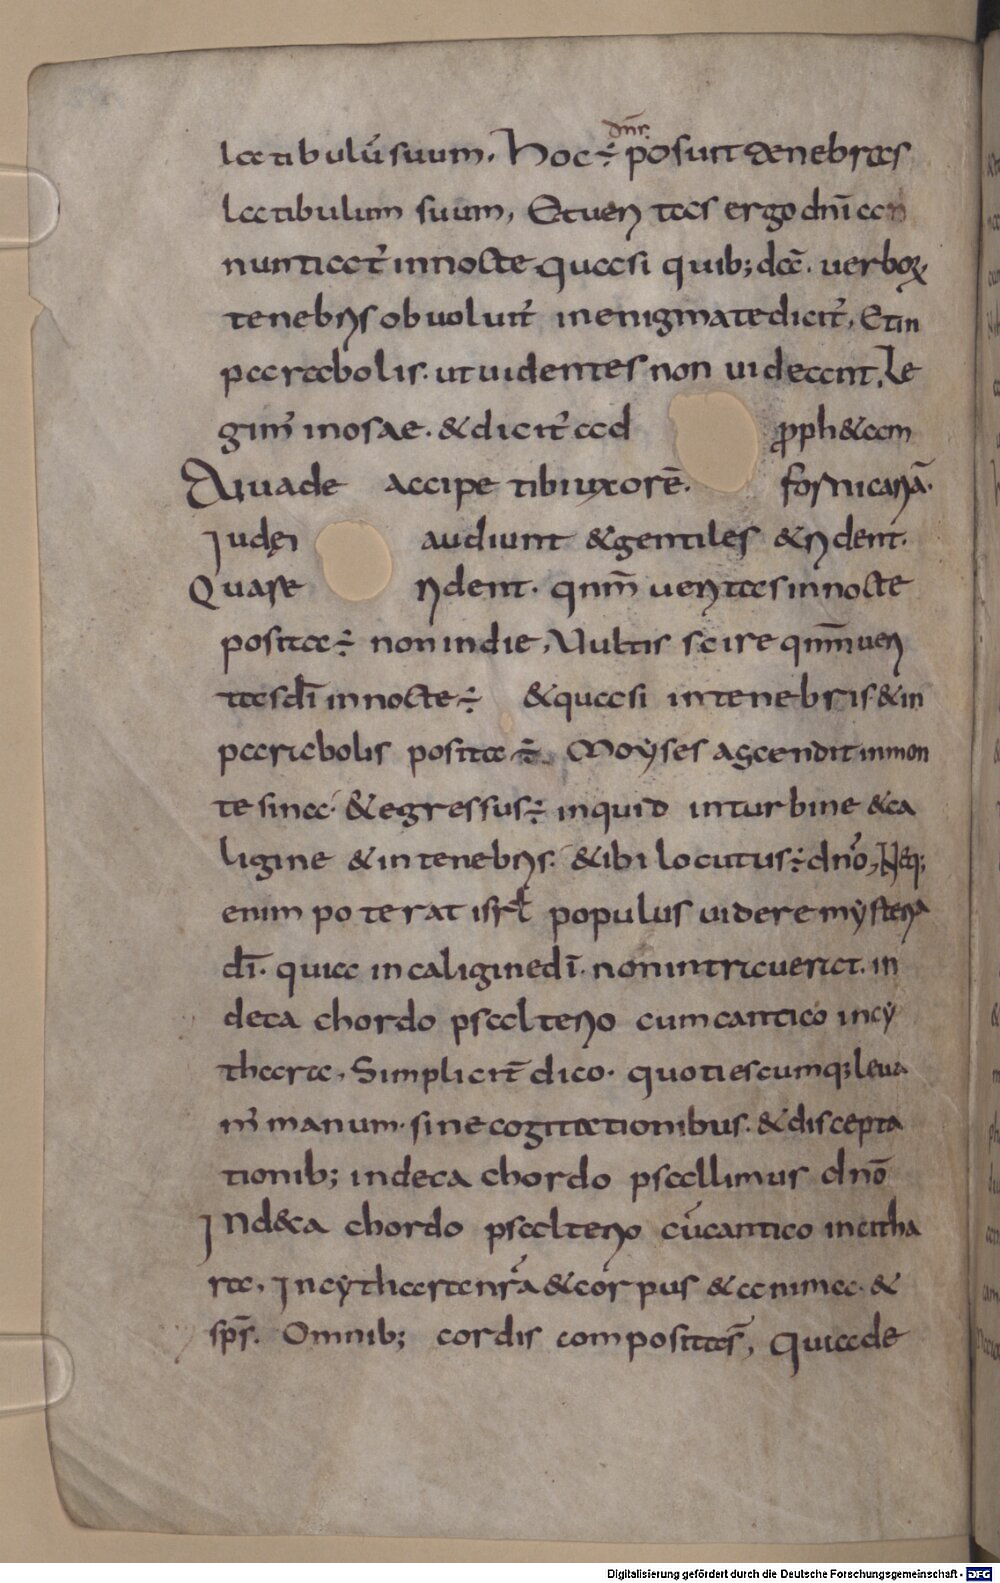 dn̄s
latibulū suum. Hoc ÷ posuit tenebras
latibulum suum, Et ueritas ergo dnī an
nuntiatͬ in nocte quasi quib; dā. uerboꝝ
tenebris obuoluitͬ in enigmate dicitͬ, Et in
parabolis. ut uidentes non uideant, Le
gimͬ in osae. & dicitͬ ad p̄ph&am
Auade accipe tibi uxorē. fornicariā.
Iudęi audiunt & gentiles & rident.
Quare rident. qnm̄ ueritas in nocte
posita ÷ non in die, Uultis scire qnm̄ ueri
tas dī in nocte ÷ & quasi in tenebris & in
parabolis posita ÷. Moyses ascendit in mon
te sina. & egressus ÷ inquid in turbine & ca
ligine & in tenebris. & ibi locutus ÷ dnō, Neq;
enim poterat isrl̄ populus uidere mysteria
dī. quia in caligine dī. non intrauerat. in
deca chordo psalterio cum cantico in cy
thara, Simplicit̄ dico. quotiescumq; leua
mͬ manum. sine cogitationibus. & discepta
tionib; in deca chordo psallimus dnō
In d&a chordo psalterio cū cantico in citha
ra, In cythara nr̄a & corpus & anima. &
sps̄. Omnib; cordis compositas̄, Quia de
Digitalisierung gefördert durch die Deutsche Forschungsgemeinschaft - DFG